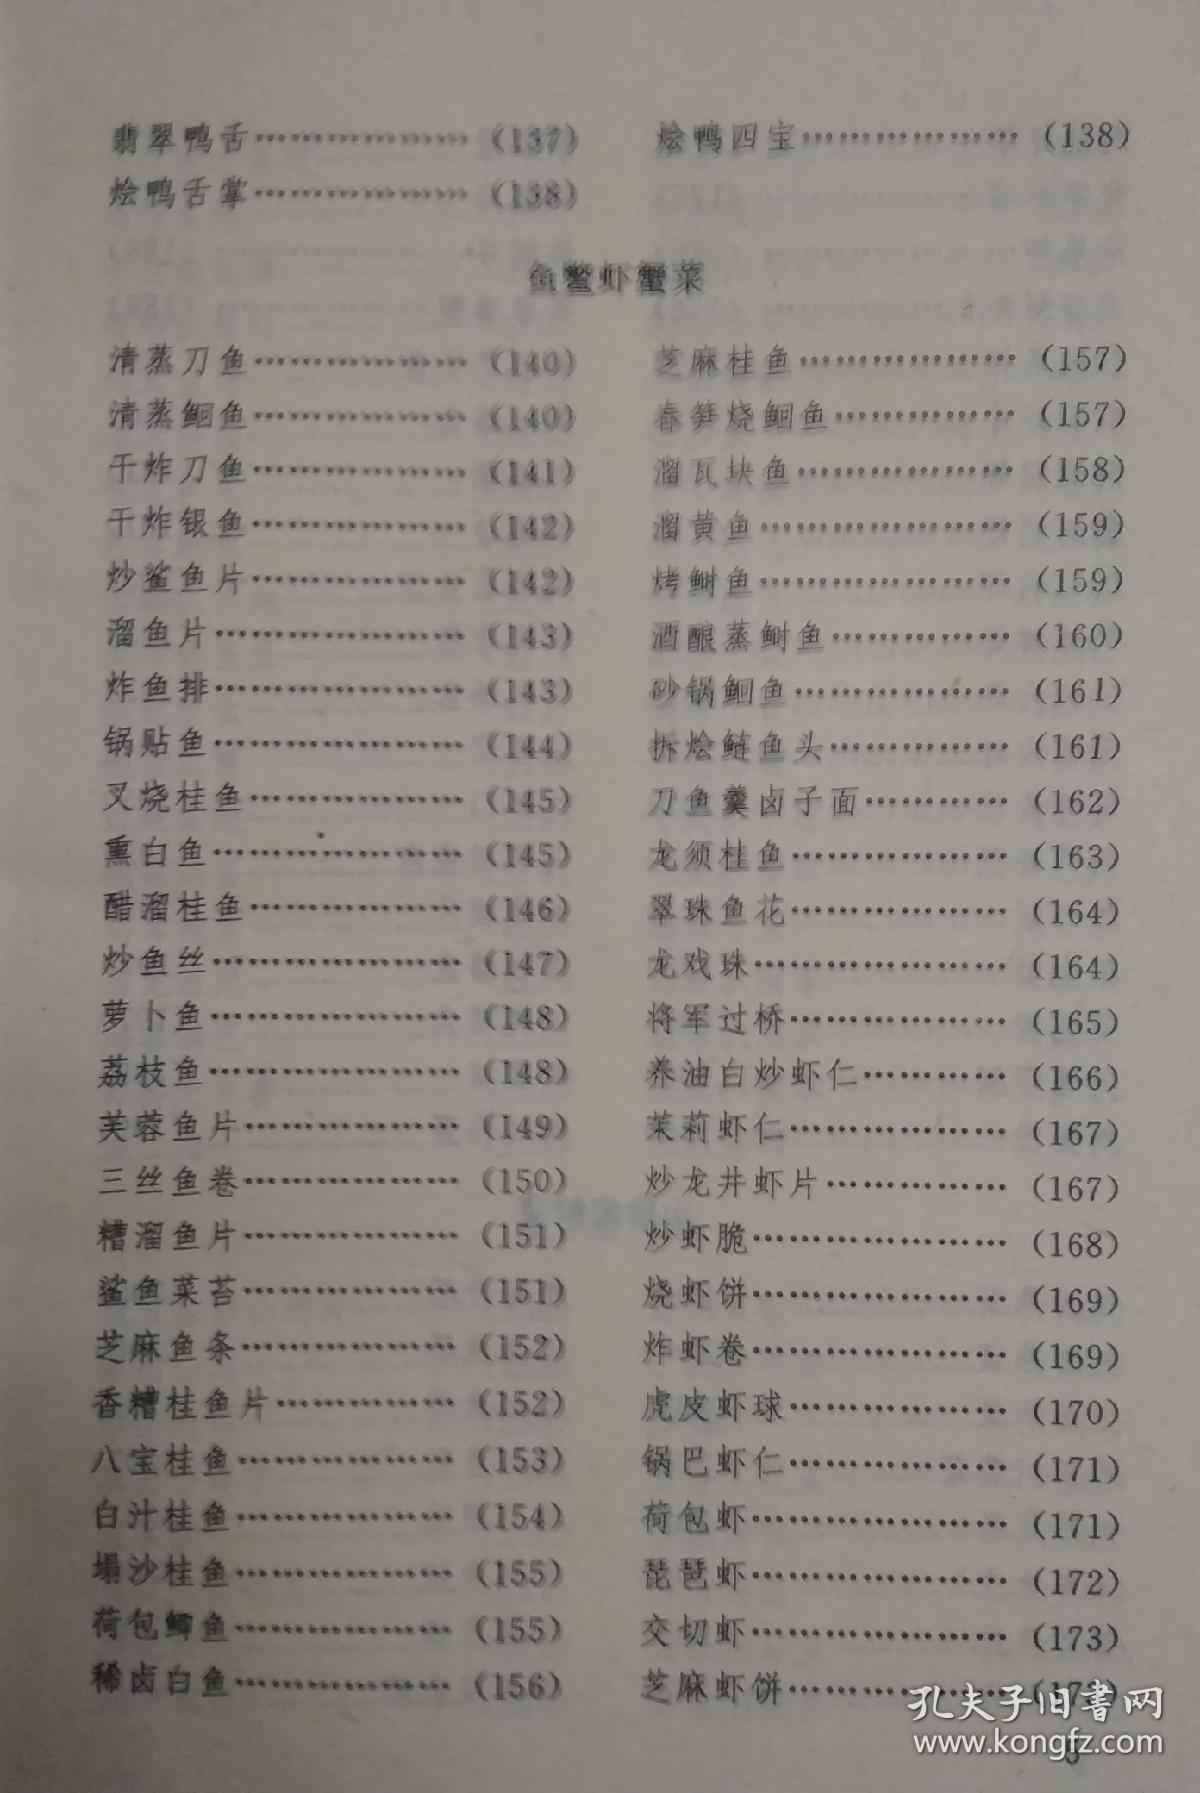 翡翠鸭舌………………(137)
烩鸭舌掌………………(138)
烩鸭四宝………………(138)
鱼鳖虾蟹菜
清蒸刀鱼………………(140)
清蒸鮰鱼………………(140)
干炸刀鱼………………(141)
干炸银鱼………………(142)
炒鲨鱼片………………(142)
溜鱼片…………………(143)
炸鱼排…………………(143)
锅贴鱼…………………(144)
叉烧桂鱼………………(145)
熏白鱼…………………(145)
醋溜桂鱼………………(146)
炒鱼丝…………………(147)
萝卜鱼…………………(148)
荔枝鱼…………………(148)
芙蓉鱼片………………(149)
三丝鱼卷………………(150)
糟溜鱼片………………(151)
鲨鱼菜苔………………(151)
芝麻鱼条………………(152)
香糟桂鱼片……………(152)
八宝桂鱼………………(153)
白汁桂鱼………………(154)
塌沙桂鱼………………(155)
荷包鲫鱼………………(155)
稀卤白鱼………………(156)
芝麻桂鱼………………(157)
春笋烧鮰鱼……………(157)
溜瓦块鱼………………(158)
溜黄鱼…………………(159)
烤鲥鱼…………………(159)
酒酿蒸鲥鱼……………(160)
砂锅鮰鱼………………(161)
拆烩鲢鱼头……………(161)
刀鱼羹卤子面…………(162)
龙须桂鱼………………(163)
翠珠鱼花………………(164)
龙戏珠…………………(164)
将军过桥………………(165)
养油白炒虾仁…………(166)
茉莉虾仁………………(167)
炒龙井虾片……………(167)
炒虾脆…………………(168)
烧虾饼…………………(169)
炸虾卷…………………(169)
虎皮虾球………………(170)
锅巴虾仁………………(171)
荷包虾…………………(171)
琵琶虾…………………(172)
交切虾…………………(173)
芝麻虾饼………………(173)
孔夫子旧书网
www.kongfz.com
5